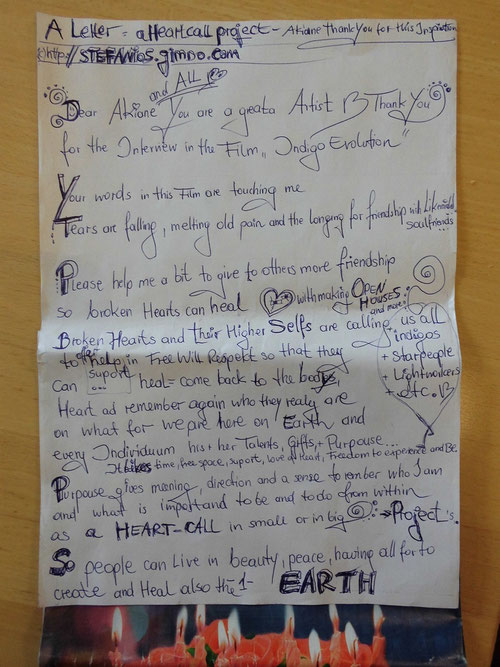 A Letter = a Heartcall project - Akiane thank You for this Inspiration
http// STEFANIA5.gimdo.com
and ALL
Dear Akiane You are a greata Artist Thank You
for the Interview in the Film „Indigo Evolution"
Your words in this Film are touching me
Tears are falling, melting old pain and the longing for friendship with Likeminded
soulfriends
Please help me a bit to give to others more friendship
so broken Hearts can heal with making OPEN
HOUSES
and more
Broken Hearts and their Higher Selfs are calling us all
indigos
to offer help in Free Will Respect so that they
+ Starpeople
can suport heal = come back to the body,
+ Lightworkers
+ etc.
Heart ad remember again who they realy are
on what for we are here on Earth and
every Individuum his + her Talents, Gifts, + Purpouse...
It takes time, free space, suport, love of Heart, Freedom to experience and Be.
Purpouse gives meaning, direction and a sense to remember who I am
and what is important to be and to do from within
as a HEART-CALL in small or in big Project's.
So people can Live in beauty, peace, having all for to
create and Heal also the EARTH